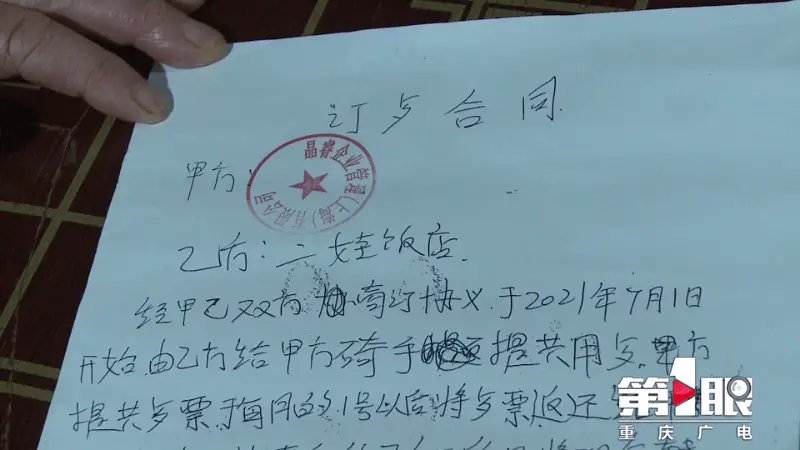 订歺合同
甲方:
晶睿企业管理(上海)有限公司
乙方:二娃饭店.
经甲乙双方协商订协议,于2021年9月1日
开始.由乙方给甲方骑手提共用歺.甲方
提共歺票,于每月的1号以后将歺票返还
第1眼
重庆广电